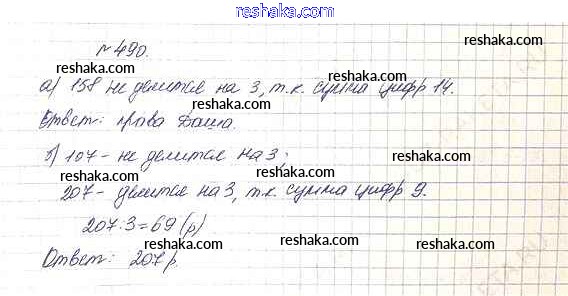 reshaka.com
№ 490.
reshaka.com
а) 158 не делится на 3, т.к. сумма цифр 14.
reshaka.com reshaka.com reshaka.com
Ответ: права Даша.
reshaka.com
б) 107 - не делится на 3;
reshaka.com reshaka.com
207 - делится на 3, т.к. сумма цифр 9.
reshaka.com
207:3=69 (р)
reshaka.com reshaka.com
Ответ: 207 р.
reshaka.com reshaka.com
reshaka.com